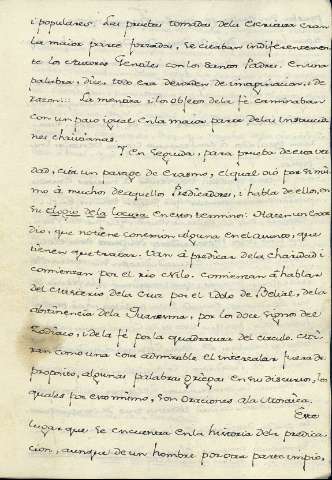 i populares. Las pruebas tomadas dela Escritura eran
la maior parte forzadas, se citaban indiferentemen
te los Autores Gentiles con los Santos Padres. En una
palabra, dice, todo era desorden de imaginacion, i de
razon... La mentira i los objetos dela fé caminaban
con un paso igual en la maior parte delas instruccio
nes christianas.
Y en seguida, para prueba de esta ver
dad, cita un pasage de Erasmo, el qual oió por si mis
mo à muchos de aquellos Predicadores, i habla de ellos, en
su elogio de la locura en estos terminos: Hacen un exor
dio, que no tiene conexion alguna con el asunto, que
tienen que tratar. Van à predicar dela charidad i
comienzan por el rio Nilo: comienzan à hablar
del misterio dela Cruz por el idolo de Belial, dela
abstinencia dela Quaresma, por los doce signos del
Zodiaco, i dela fé por la quadratura del circulo. Mi
ran como una cosa admirable el intercalar fuera de
proposito, algunas palabras griegas en su discurso, los
quales por eso mismo, son oraciones ala Mosaica.
Este
lugar que se encuentra en la historia dela predica
cion, aunque de un hombre por otra parte impio,